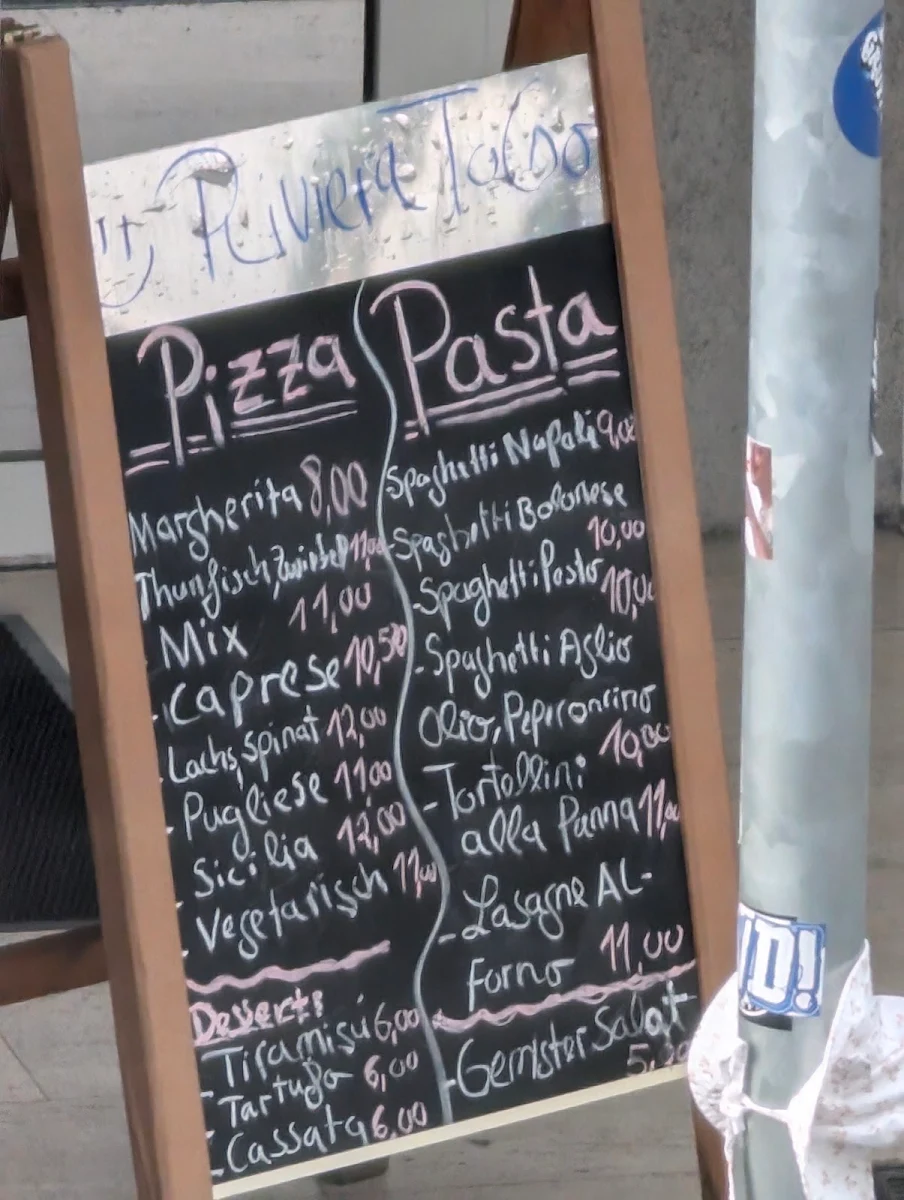 Riviera To Go
Pizza
Margherita 8,00
Thunfisch, Zwiebel 11,00
Mix 11,00
- Caprese 10,50
- Lachs, Spinat 12,00
- Pugliese 11,00
- Sicilia 12,00
- Vegetarisch 11,00
Desserts
- Tiramisú 6,00
- Tartufo 6,00
- Cassata 6,00
Pasta
Spaghetti Napoli 9,00
- Spaghetti Bolonese
10,00
- Spaghetti Pesto 10,00
- Spaghetti Aglio
Olio, Peperoncino
10,00
- Tortellini
alla Panna 11,00
- Lasagne AL-
Forno 11,00
- Gemister Salat
D!